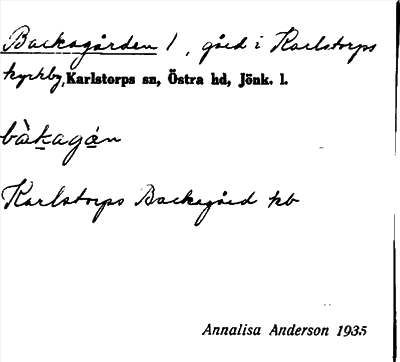 Backagården 1, gård i Karlstorps
kyrkby, Karlstorps sn, Östra hd, Jönk. l.
bàkagán
Karlstorps Backagård kb
Annalisa Anderson 1935